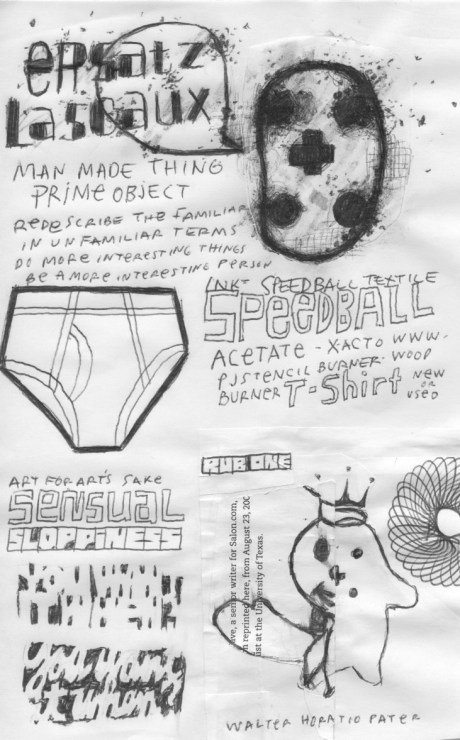 ersatz
Lascaux
MAN MADE THING
PRIME OBJECT
REDESCRIBE THE FAMILIAR
IN UNFAMILIAR TERMS
DO MORE INTERESTING THINGS
BE A MORE INTERESTING PERSON
INK- SPEEDBALL TEXTILE
SPEEDBALL
ACETATE - X-ACTO WWW.
PJSTENCIL BURNER. WOOD
BURNER T-Shirt NEW
OR
USED
ART FOR ART'S SAKE
SENSUAL
SLOPPINESS
RUB ONE
ave, a senior writer for Salon.com,
n reprinted here, from August 23, 200
ist at the University of Texas.
WALTER HORATIO PATER